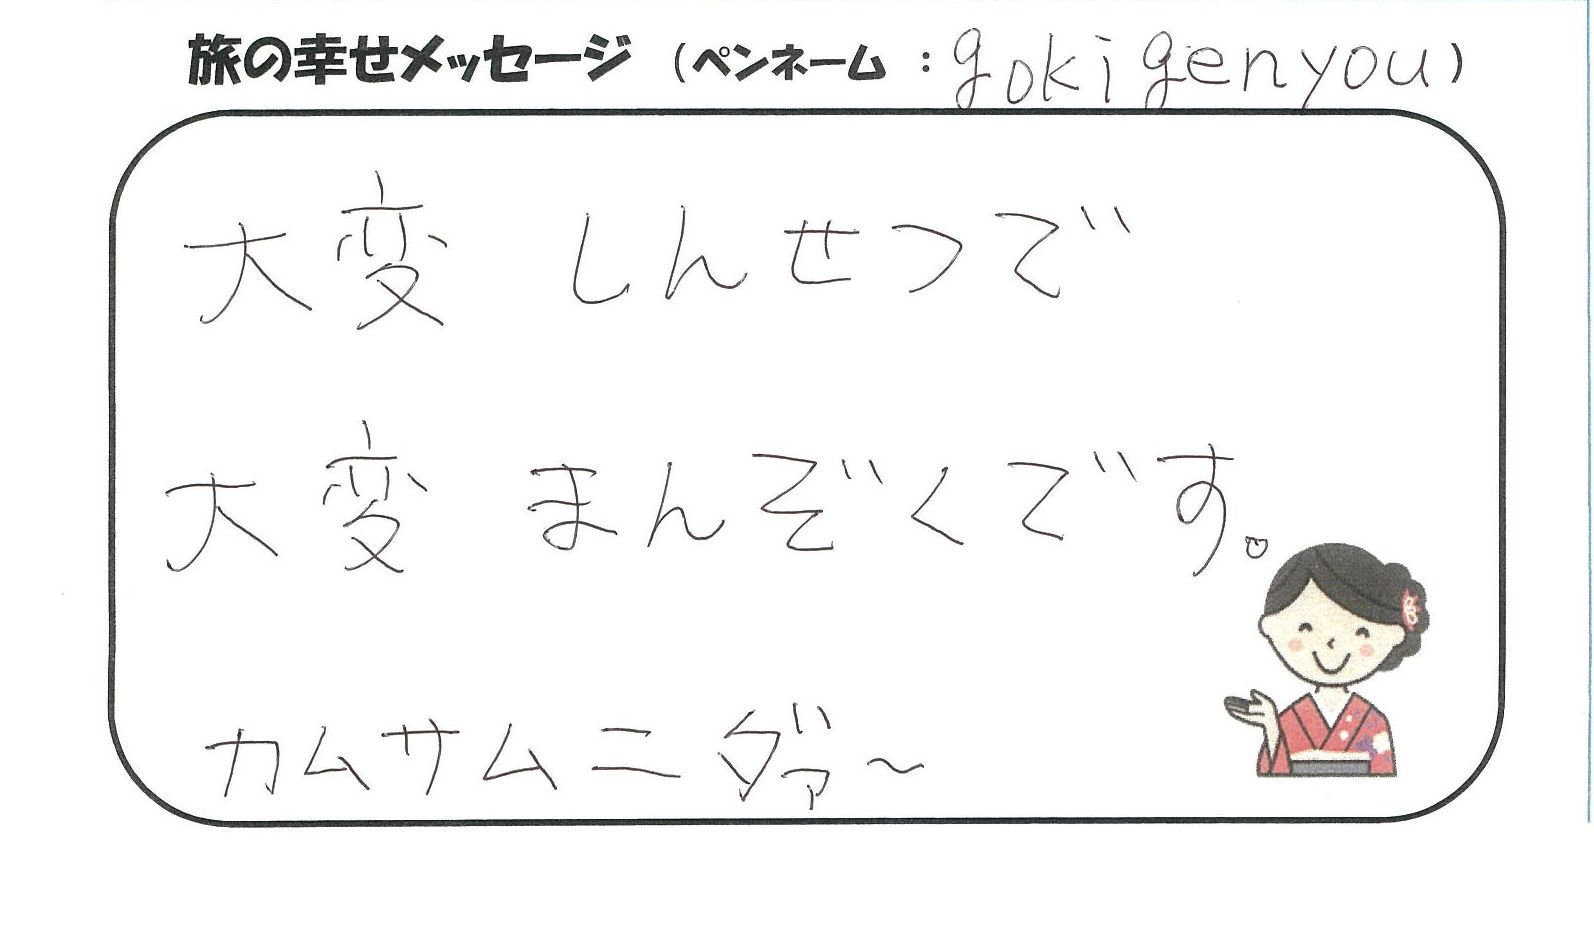 旅の幸せメッセージ （ペンネーム：gokigenyou）
大変 しんせつで
大変 まんぞくです。
カムサムニダァ～